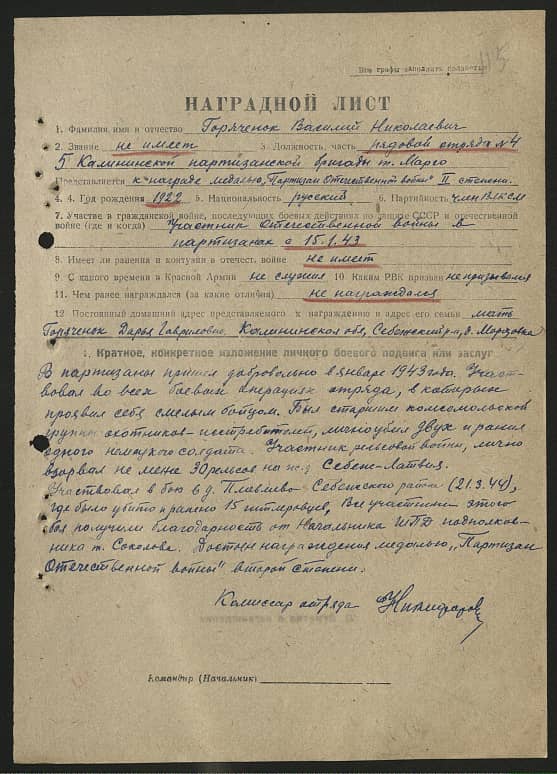 Все графы заполнять полностью
415
НАГРАДНОЙ ЛИСТ
1. Фамилия имя и отчество Горяченок Василий Николаевич
2. Звание не имеет 3. Должность, часть рядовой отряда № 4
5 Калининской партизанской бригады т. Марго
Представляется к награде медалью „Партизан Отечественной войны" II степени.
4. Год рождения 1922 5. Национальность русский 6. Партийность член ВЛКСМ
7. Участие в гражданской войне, последующих боевых действиях по защите СССР и отечественной
войне (где и когда) Участник Отечественной войны в
партизанах с 15.1.43
8. Имеет ли ранения и контузии в отечест. войне не имеет
9. С какого времени в Красной Армии не служил 10. Каким РВК призван не призывался
11. Чем ранее награждался (за какие отличия) не награждался
12. Постоянный домашний адрес представляемого к награждению и адрес его семьи мать
Горяченок Дарья Гавриловна, Калининская обл, Себежский р-н, д.
1. Краткое, конкретное изложение личного боевого подвига или заслуг
В партизаны пришел добровольно в январе 1943 года. Участ-
вовал во всех боевых операциях отряда, в которых
проявил себя смелым бойцом. Был старшим комсомольской
группы охотников-истребителей, лично убил двух и ранил
одного немецкого солдата. Участник рельсовой войны, лично
взорвал не мене 30 рельсов на ж.д Себеж-Латвия.
Участвовал в бою в д. Себежского района (21.3.44),
где было убито и ранено 15 гитлеровцев, Все участники этого
боя получили благодарность от Начальника ШПД подполков-
ника т. Соколова. Достоин награждения медалью „Партизан
Отечественной войны" второй степени.
Комиссар отряда
Командир (Начальник)